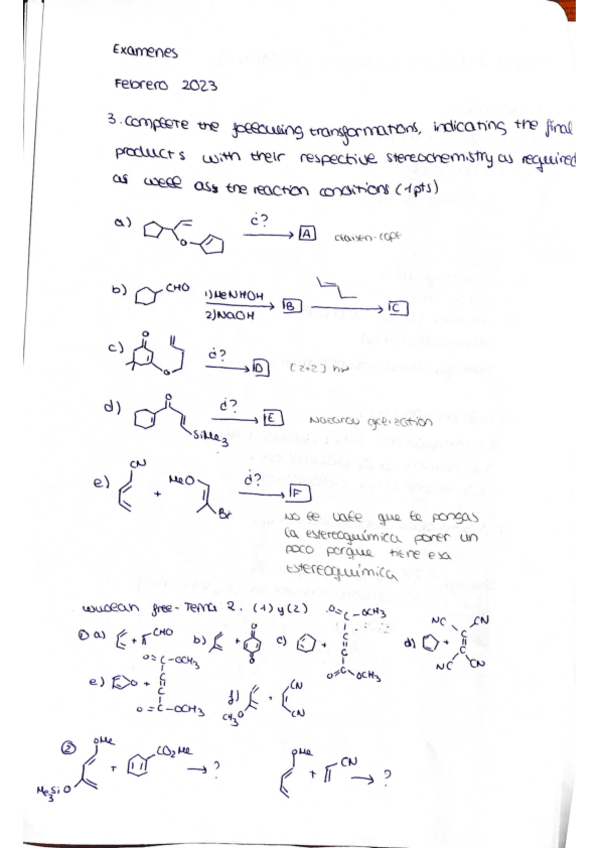 Examenes
Febrero 2023
3. Complete the following transformations, indicating the final
products with their respective stereochemistry as required
as well ass the reaction conditions (1pts)
a) O ¿? A claisen-cope
b) CHO 1) MeNHOH 2) NaOH B C
c) O O ¿? D (2+2) hν
d) O SiMe3 ¿? E Nazarov
e) CN + MeO Br ¿? F
No te vale que te pongas
la estereoquímica poner un
poco porque tiene esa
estereoquímica
free-Tema 2. (1) y (2)
① a) + CHO b) + O O c) + O=C-OCH3 C C O=C OCH3 d) + NC CN C C NC CN
e) O + O=C-OCH3 C C O=C-OCH3 f) CH3O + CN CN
② OMe Me3SiO + CO2Me → ? OMe + CN → ?